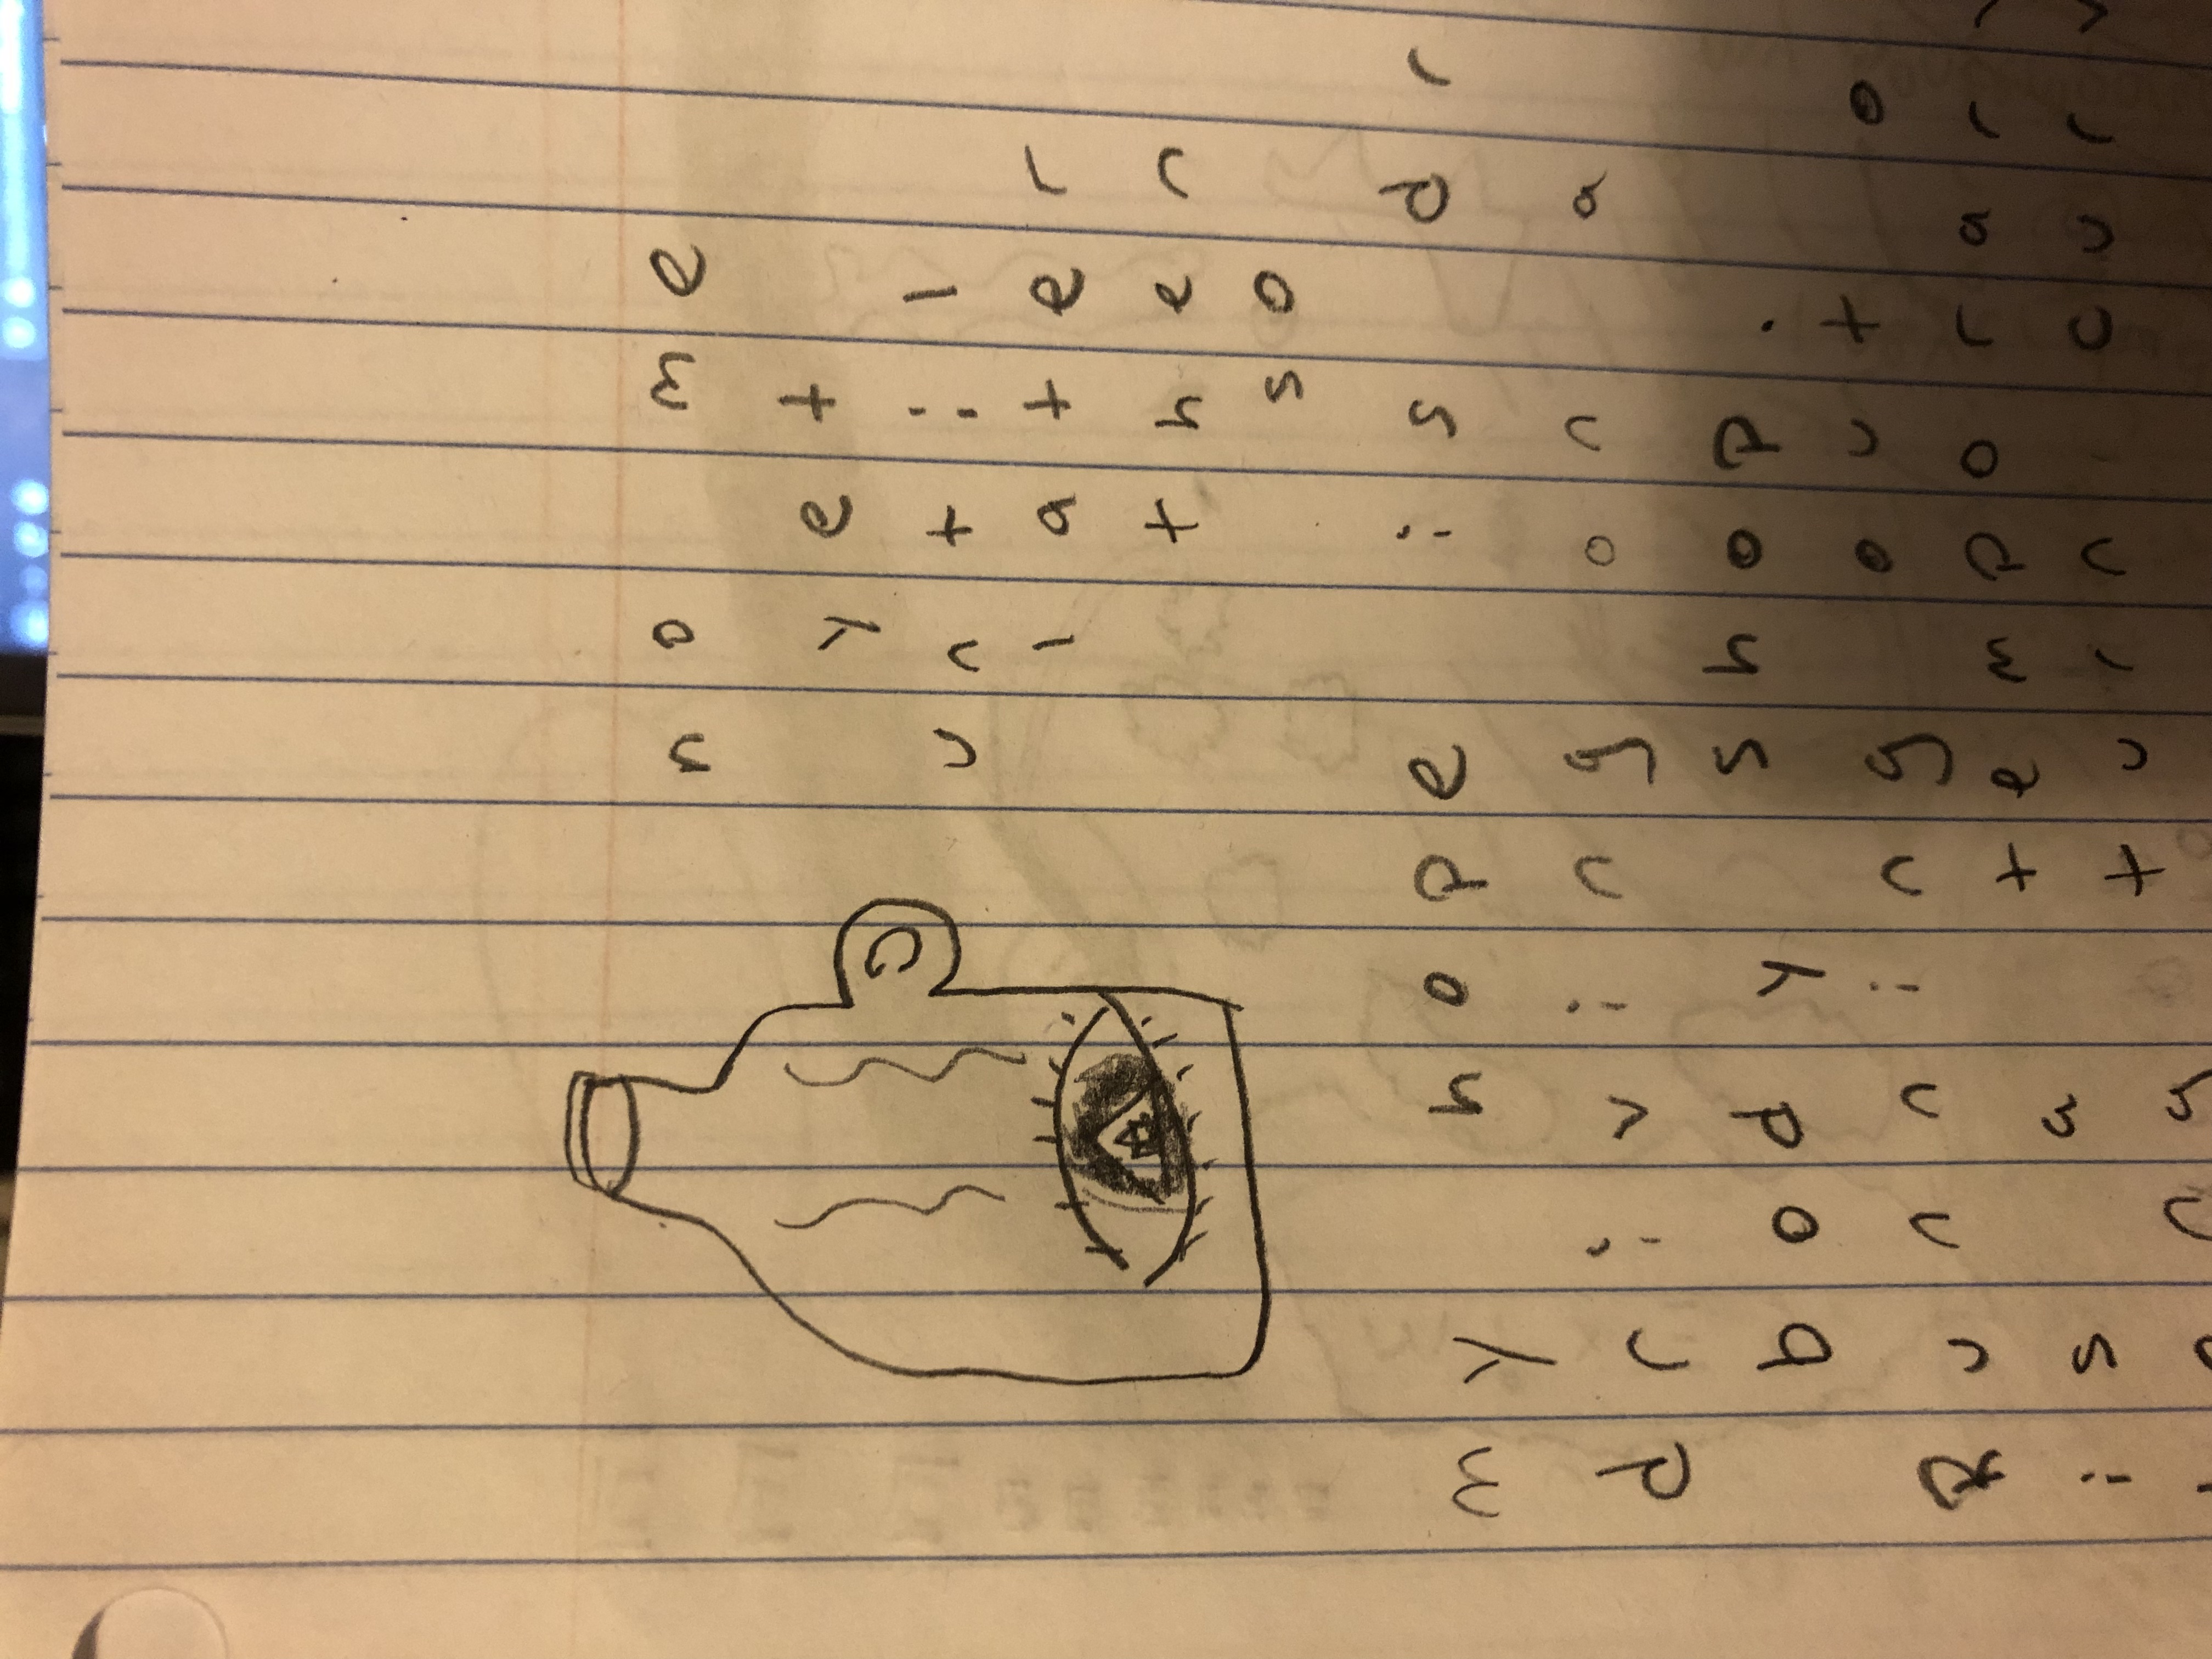 no me
yet
until
later
then
so
my hope is
driving on a
body shop.
Running out
temporary
is a turn